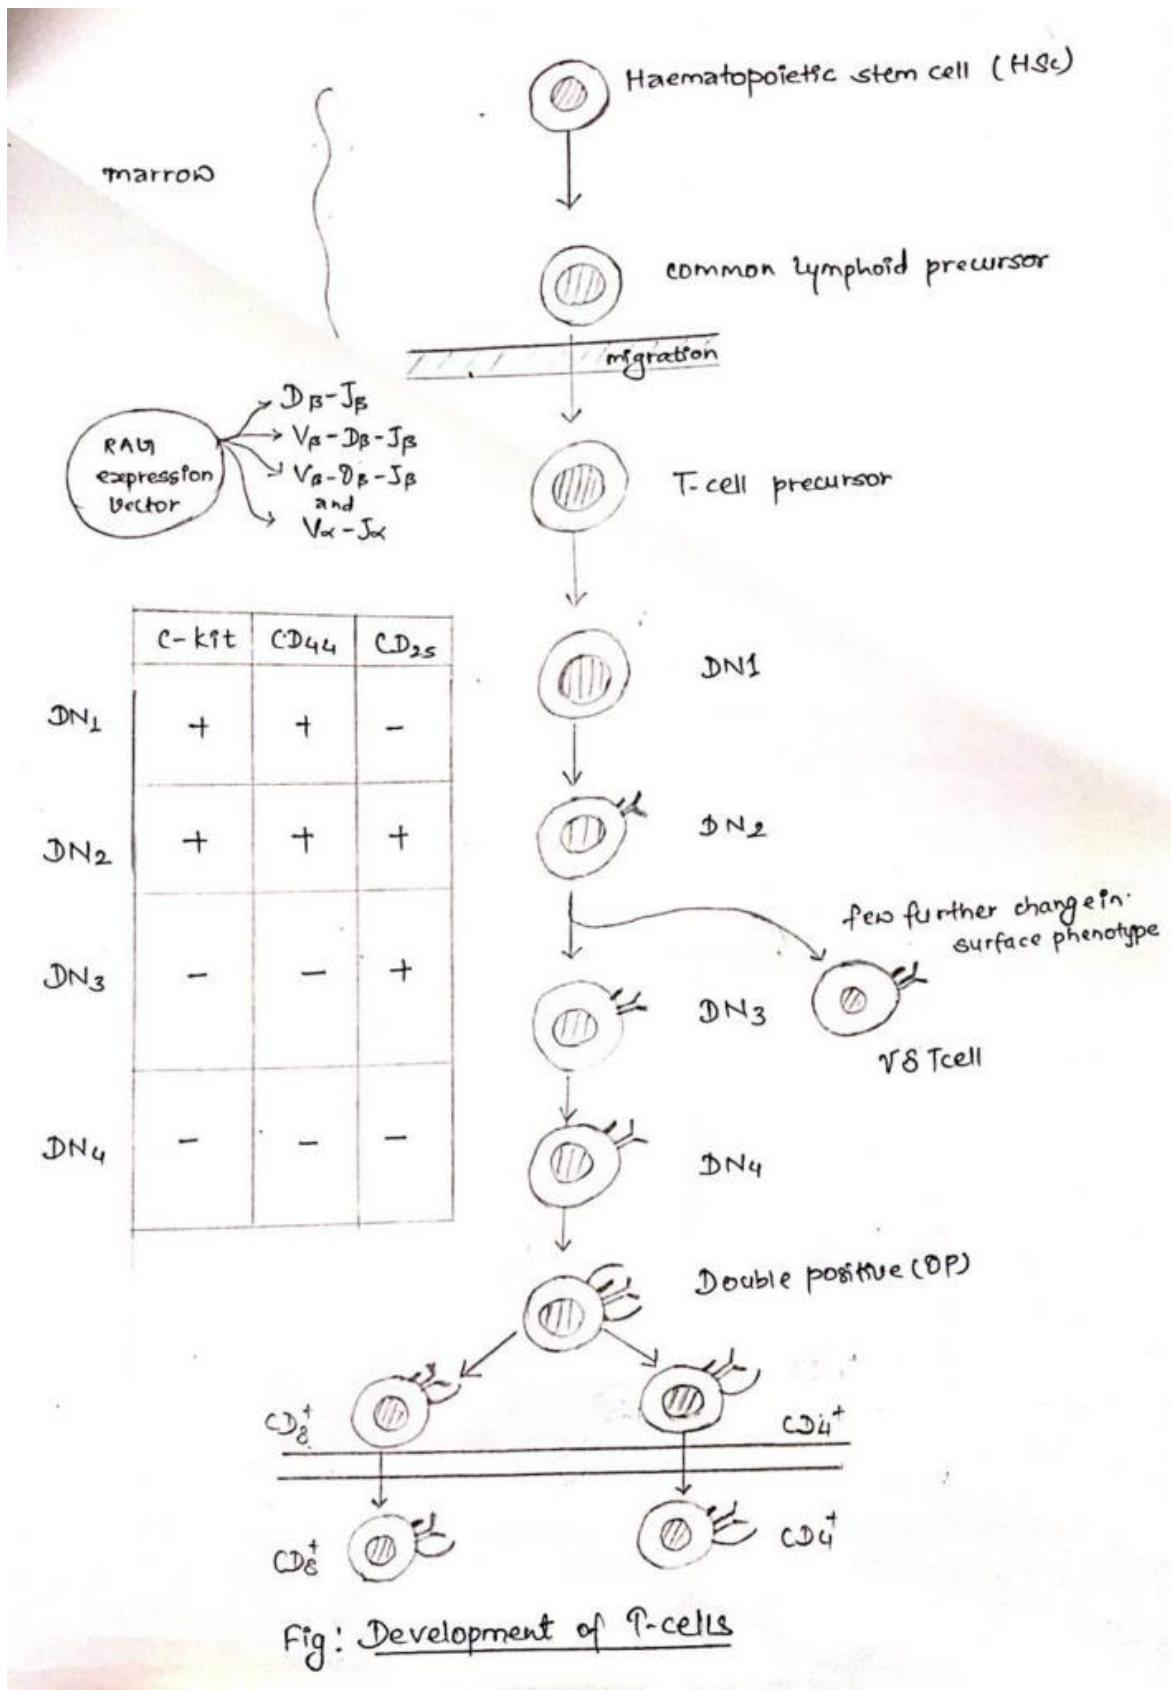 Haematopoietic stem cell (HSc)
marrow
common lymphoid precursor
migration
Dβ-Jβ
Vβ-Dβ-Jβ
Vβ-Dβ-Jβ
and
Vα-Jα
RAG
expression
vector
T-cell precursor
C-kit CD44 CD25
DN1 + + -
DN2 + + +
DN3 - - +
DN4 - - -
DN1
DN2
few further change in
surface phenotype
DN3
γδ Tcell
DN4
Double positive (DP)
CD8+
CD4+
CD8+
CD4+
Fig: Development of T-cells